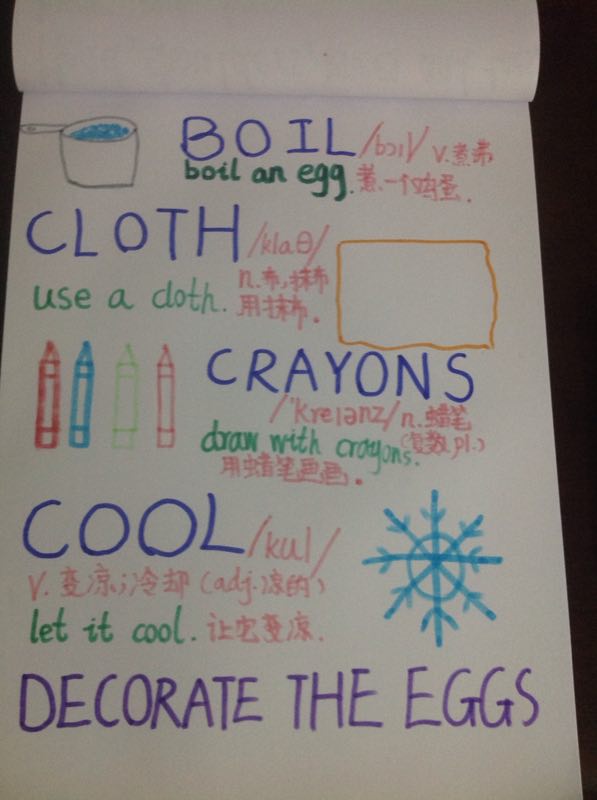 BOIL /bɔɪl/ v.煮沸
boil an egg. 煮一个鸡蛋.
CLOTH /klaθ/
n.布,抹布
use a cloth. 用抹布.
CRAYONS
/'kreɪənz/ n.蜡笔
(复数 pl.)
draw with crayons.
用蜡笔画画.
COOL /kul/
v. 变凉;冷却 (adj.凉的)
let it cool. 让它变凉.
DECORATE THE EGGS